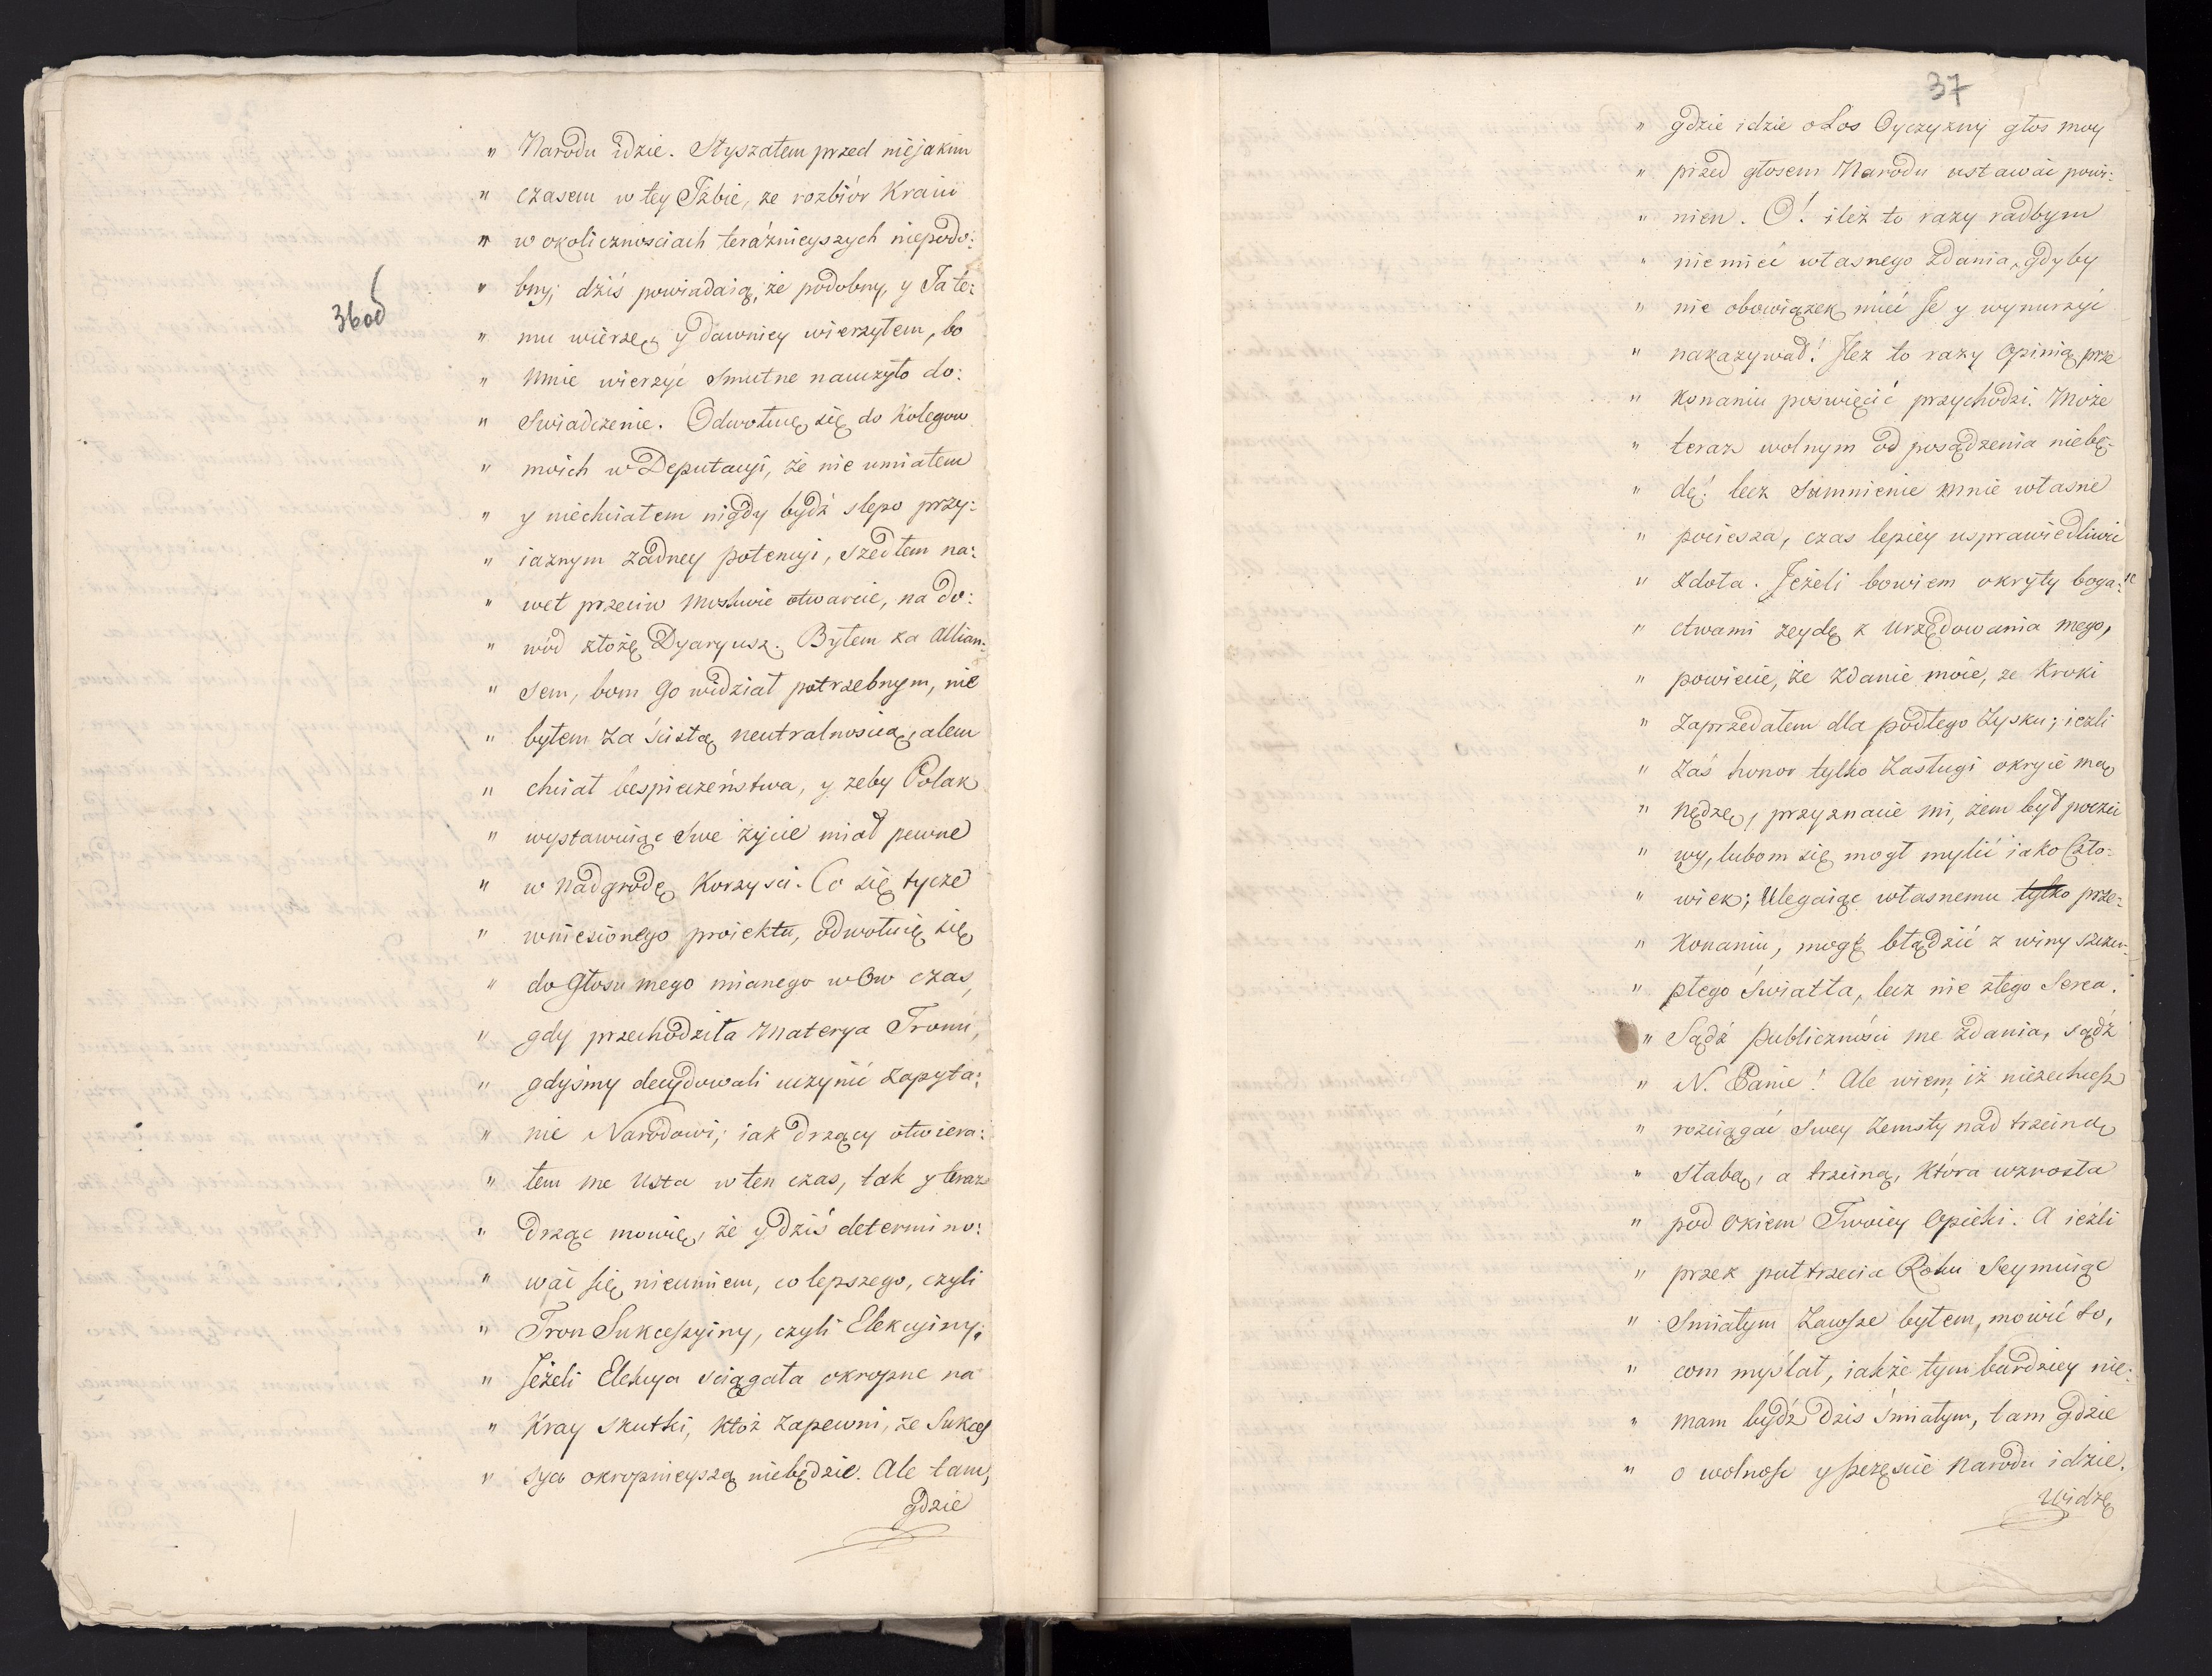 " Narodu idzie. Słyszałem przed niejakim
" czasem w tey Izbie, ze rozbiór Kraiu
" w okolicznosciach teráznieyszych niepodo:
" bny; dziś powiadaią, że podobny, y Ja te:
" mu wierzę, y dawniey wierzyłem, bo
" mnie wierzyć smutne nauczyło do:
" swiadczenie. Odwołuię się do Kolegow
" moich w Deputacyi, że nie umiałem
" y niechciałem nigdy bydź slepo przy:
" iaznym żadney potencyi, szedłem na:
" wet przeciw Moskwie otwarcie, na do:
" wód złożę Dyaryusz. Byłem za Allian:
" sem, bom go widział potrzebnym, nie
" byłem za ścisłą neutralnoscią, alem
" chciał bespieczeństwa, y zeby Polak
" wystawuiąc swe życie miał pewne
" w nadgrodę Korzysci. Co się tycze
" wniesionego proiektu, odwołuię się
" do Głosu mego mianego w Ow czas,
" gdy przechodziła Materya Tronu,
" gdyśmy decydowali uczynić zapyta:
" nie Narodowi; iak drżący otwiera:
" łem me usta w ten czas, tak y teraz
" drżąc mowię, że y dziś determino:
" wać się nieumiem, co lepszego, czyli
" Tron Sukcessyiny, czyli Elekcyiny;
" Jeżeli Elekcya sciągała okropne na
" Kray skutki, któż zapewni, ze Sukces
" sya okropnieyszą niebędzie. Ale tam,
gdzie
36od
37
" gdzie idzie o Los Oyczyzny głos moy
" przed głosem Narodu ustawać powi:
" nien. O! ileż to razy radbym
" nie mieć własnego zdania, gdyby
" nie obowiązek mieć Je y wynurzyć
" nakazywał! Jleż to razy Opinią prze
" konaniu poswięcić przychodzi. Może
" teraz wolnym od posądzenia niebę-
" dę: lecz sumnienie mnie własne
" pociesza, czas lepiey usprawiedliwić
" zdoła. Jeżeli bowiem okryty boga:
" ctwami zeydę z Urzędowania mego,
" powiecie, że zdanie moie, ze Kroki
" zaprzedałem dla podłego zysku; ieżli
" zaś honor tylko zasługi okryie mą
" nędzę, przyznacie mi, żem był poczci
" wy, lubom się mogł mylić iako Czło:
" wiek; Ulegaiąc własnemu tylko prze:
" konaniu, mogę błądzić z winy szczu:
" płego światła, lecz nie złego Serca.
" Sądź Publiczności me zdania, sądź
" N. Panie! Ale wiem, iż niezechcesz
" rozciągać swey zemsty nad trzciną
" słabą, a trzciną, która wzrosła
" pod okiem Twoiey Opieki. A ieżli
" przez puł trzecia Roku Seymuiąc
" Smiałym zawsze byłem, mowić to,
" com myślał, iakże tym bardziey nie:
" mam bydź dziś śmiałym, tam gdzie
" o wolność y szczęscie Narodu idzie.
Widzę